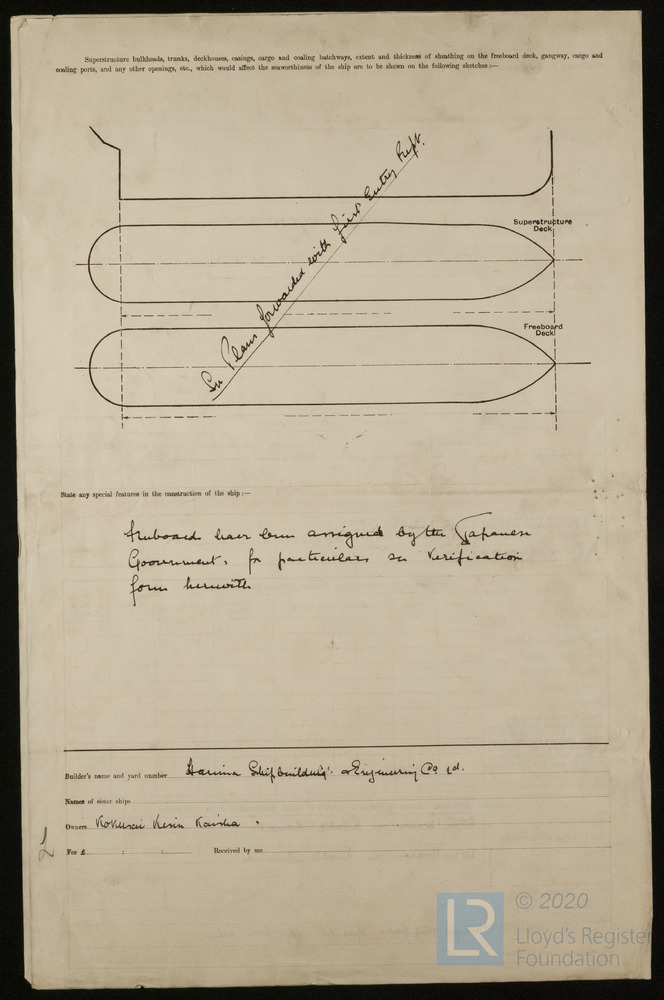 Superstructure bulkheads, trunks, deckhouses, casings, cargo and coaling hatchways, extent and thickness of sheathing on the freeboard deck, gangway, cargo and
coaling ports, and any other openings, etc., which would affect the seaworthiness of the ship are to be shewn on the following sketches:—
Superstructure
Deck
See Plans forwarded with first Entry Rept.
Freeboard
Deck
State any special features in the construction of the ship:—
Freeboards have been assigned by the Japanese
Government, for particulars see Verification
form herewith
Builder's name and yard number Harima Shipbuilding & Engineering Co Ld.
Names of sister ships
Owners Kokusai Kisen Kaisha.
Fee £ : : Received by me
LR
© 2020
Lloyd's Register
Foundation